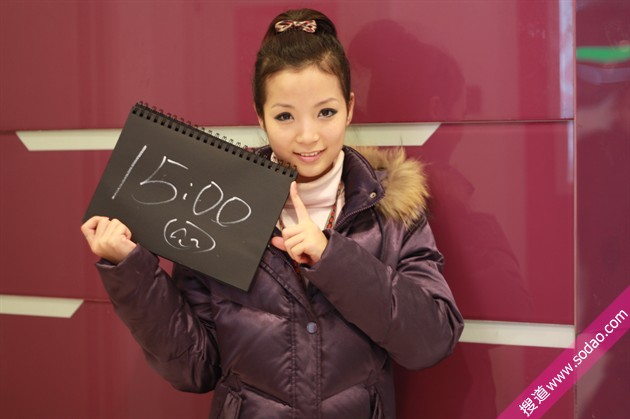 15:00
搜道 www.sodao.com